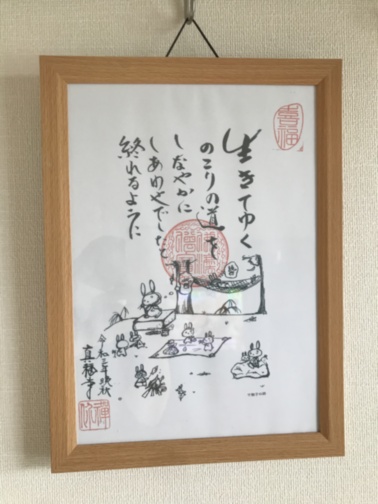 生きてゆく
のこりの道を
しなやかに
しあわせでしたと
終れるように
令和二年晩秋